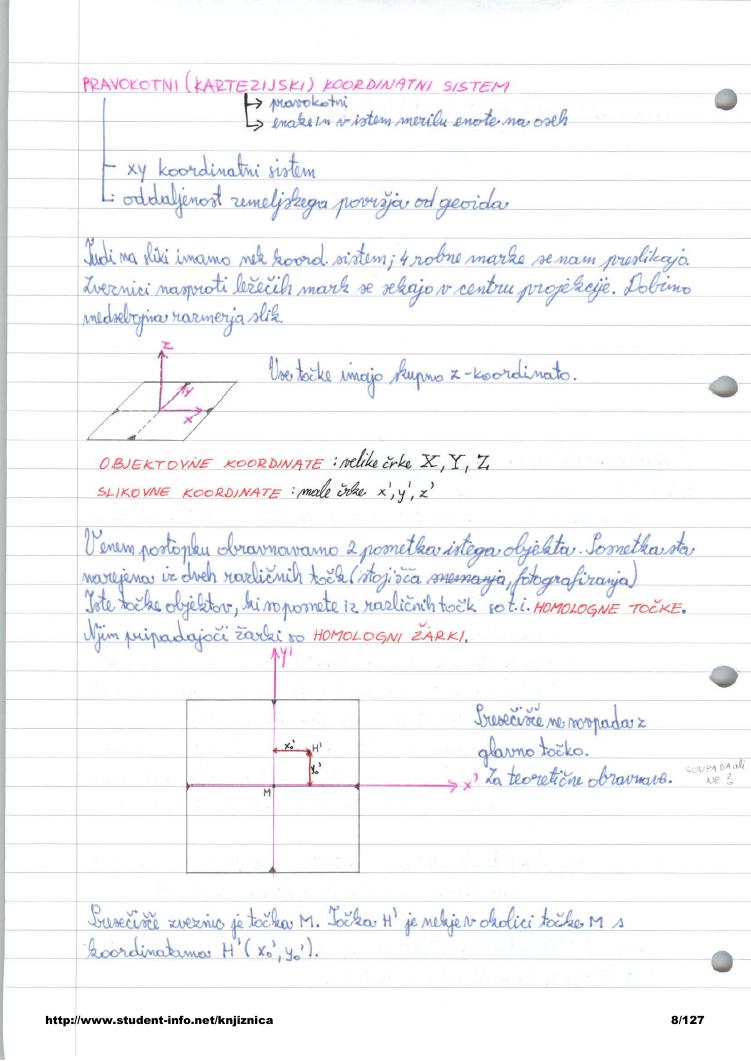 PRAVOKOTNI (KARTEZIJSKI) KOORDINATNI SISTEM
→ pravokotni
→ enake in v istem merilu enote na oseh
xy koordinatni sistem
oddaljenost zemeljskega površja od geoida
Tudi na sliki imamo nek koord. sistem; 4 robne marke se nam preslikajo.
Zveznici nasproti ležečih mark se sekajo v centru projekcije. Dobimo
medsebojna razmerja slik.
z
y
x
Vse točke imajo skupno z-koordinato.
OBJEKTOVNE KOORDINATE : velike črke X, Y, Z
SLIKOVNE KOORDINATE : male črke x', y', z'
V enem postopku obravnavamo 2 posnetka istega objekta. Posnetka sta
narejena iz dveh različnih točk (stojišča snemanja, fotografiranja)
Iste točke objektov, ki so posnete iz različnih točk so t.i. HOMOLOGNE TOČKE.
Njim pripadajoči žarki so HOMOLOGNI ŽARKI.
y'
x₀'
H'
y₀'
M
x'
Presečišče ne sovpada z
glavno točko.
Za teoretične obravnave.
SOVPADA ali
NE ?
Presečišče zveznic je točka M. Točka H' je nekje v okolici točke M s
koordinatama H' (x₀', y₀').
http://www.student-info.net/knjiznica
8/127